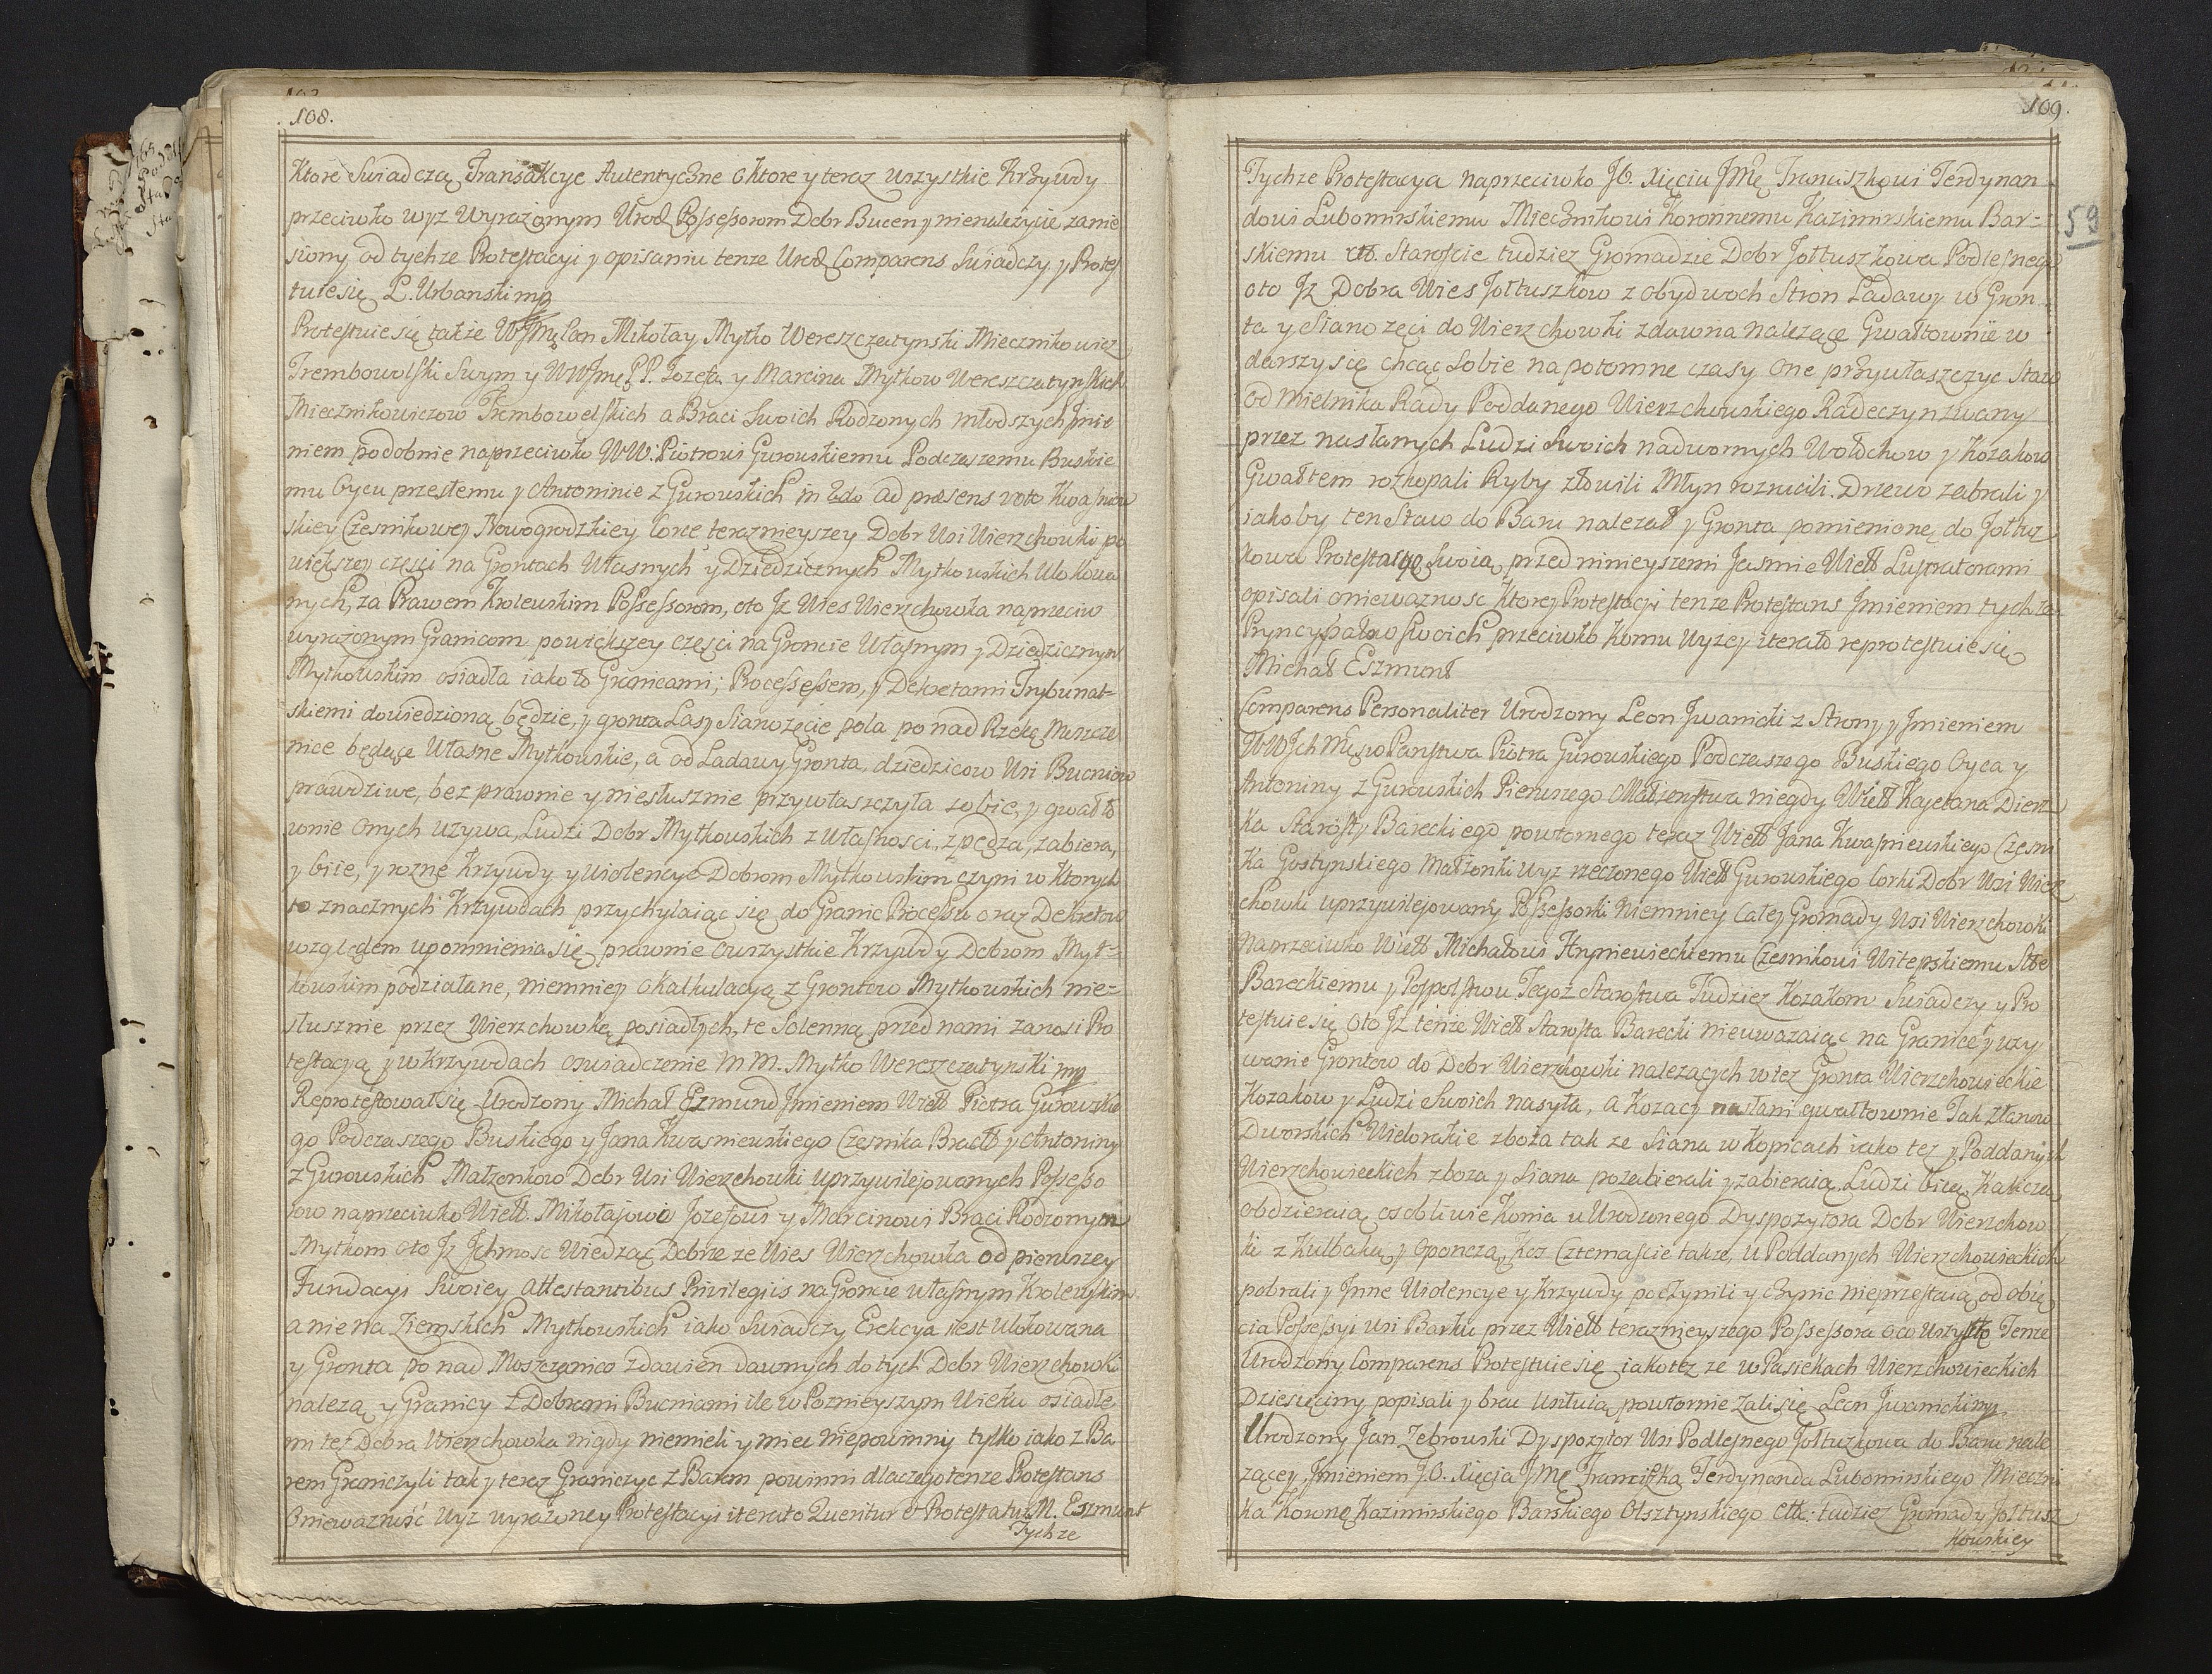 108.
Ktore Swiadczą Transakcye Autentyczne o ktore y teraz wszystkie Krzywdy
przeciwko wyz Wyrazonym Urod Possessorom Dobr Bucen y nienalezycie zanie
siony od tychze Protestacyi y opisaniu tenze Urod Comparens Swiadczy y Protes
tuie się L. Urbanski mp
Protestuie się takze WJMę Pan Mikołay Mytko Wereszczatynski Miecznikowicz
Trembowolski Swym y WWJmę PP. Iozefa y Marcina Mytkow Wereszczatynskich
Miecznikowiczow Trembowelskich a Braci Swoich Rodzonych młodszych Jmie
niem podobnie naprzeciwko WW. Piotrowi Gurowskiemu Podczaszemu Buskie
mu Oycu przeszłemu y Antoninie z Gurowskich in 2do ad præsens voto Kwasniew
skiey Czesnikowey Nowogrodzkiey Corce teraznieyszey Dobr Wsi Wierzchowki po
większey częsci na Grontach Własnych y Dziedzicznych Mytkowskich Ulokowa
nych, za Prawem Krolewskim Possessorom, oto Jz Wies Wierzchowka naprzeciw
wyrazonym Granicom powiększey Częsci na Groncie Własnym y Dziedzicznym
Mytkowskim osiadła iako to Granicami; Processem, y Dekretami Trybunal-
skiemi dowiedziono będzie, y gronta Lasy Sianozęcie pola po nad Rzekę Moszcze
nice będące Własne Mytkowskie, a od Ladawy Gronta, dziedzicow Wsi Bucniow
prawdziwe, bez prawnie y niesłusznie przywłaszczyła sobie, y gwałto
wnie Onych uzywa, Ludzi Dobr Mytkowskich z własnosci, zpędza, zabiera,
y bije, y rozne krzywdy y violencye Dobrom Mytkowskim czyni w ktorych
to znacznych Krzywdach przychylaiąc się do Granic Processu oraz Dekretow
względem upomnienia się prawnie o wszystkie Krzywdy Dobrom Myt-
kowskim podziałane, niemniey o kalkulacyą z Grontow Mytkowskich nie-
słusznie przez Wierzchowkę posiadłych, te Solenną przed nami zanosi Pro
testacyą y w krzywdach oswiadczenie M M. Mytko Wereszczatynski mp
Reprotestował się Urodzony Michał Eszmund Jmieniem Wielb Piotra Gurowskie
go Podczaszego Buskiego y Jana Kwasniewskiego Czesnika Bracł y Antoniny
z Gurowskich Małzonkow Dobr Wsi Wierzchowki uprzywilejowanych Possesso
row naprzeciwko Wielb. Mikołajowi Jozefowi y Marcinowi Braci Rodzonym
Mytkom oto Jz Jchmosc Wiedząc Dobrze ze Wies Wierzchowka od pierwszey
Fundacyi Swoiey attestantibus Privilegiis na Groncie własnym Krolewskim
a nie na Ziemskich Mytkowskich iako Swiadczy Erekcya iest Ulokowana
y Gronta po nad Moszczanico zdawien dawnych do tych Dobr Wierzchowki
nalezą y Granicy z Dobrami Bucniami ile w Poznieyszym Wieku osiadłe
mi tez Dobra Wierzchowka nigdy niemieli y miec niepowinny tylko iako z Ba
rem Graniczyli tak y teraz Graniczyc z Barem powinni dlaczego tenze Protestans
Oniewazność wyz wyrazoney Protestacyi iterato Queritur & Protestatur M. Eszmunt
Tychze
109.
59
Tychze Protestacya naprzeciwko JO. Xięciu JMę Franciszkowi Ferdynan
dowi Lubomirskiemu Miecznikowi Koronnemu Kazimirskiemu Bar-
skiemu ettt. Staroscie tudziez Gromadzie Dobr Jołtuszkowa Podlesnego
oto Jz Dobra Wies Jołtuszkow z obydwoch Stron Ladawy w Gron
ta y Sianozęci do Wierzchowki zdawna nalezące Gwałtownie w
darszy się chcąc Sobie na potomne czasy One przywłaszczyc Staw
od Mielnika Rady Poddanego Wierzchowskiego Radeczyn zwany
przez nasłanych Ludzi Swoich nadwornych Wołochow y Kozakow
Gwałtem rozkopali Ryby złowili Młyn rozrucili Drzewo zabrali y
iakoby ten Staw do Baru nalezał y Gronta pomienione do Jołtusz
kowa Protestacyę Swoią przed ninieyszemi Jasnie Wielb Lustratorami
opisali o niewaznosc Ktorey Protestacyi tenze Protestans Jmieniem tychze
Pryncypałow Swoich przeciwko komu wyzey iterato reprotestuie się
Michał Eszmunt
Comparens Personaliter Urodzony Leon Jwanicki z Strony y Jmieniem
WWJch Mcsiow Panstwa Piotra Gurowskiego Podczaszego Buskiego Oyca y
Antoniny z Gurowskich Pierwszego Małzenstwa niegdy Wielb Kajetana Dierz
ka Starosty Bareckiego powtornego teraz Wielb Jana Kwasniewskiego Czesni
ka Gostynskiego Małzonki wyz rzeczonego Wielb Gurowskiego Corki Dobr Wsi Wierz
chowki uprzywilejowany Possessorki Niemniey Całej Gromady Wsi Wierzchowki
Naprzeciwko Wielb Michałowi Hryniewieckiemu Czesnikowi Witepskiemu Stte
Bareckiemu y Pospolstwu Tegoz Starostwa Tudziez Kozakom Swiadczy y Pro
testuie się Oto Jz tenze Wielb Starosta Barecki nieuwazaiąc na Granice y uzy
wanie Grontow do Dobr Wierzchowki nalezących w tez Gronta Wierzchowieckie
Kozakow y Ludzi Swoich nasyła, a Kozacy nasłani gwałtownie Tak z łanow
Dworskich Wielorakie zboza tak ze Siana w kopicach iako tez y Poddanych
Wierzchowieckich zboza y Siana pozabierali y zabieraią, Ludzi biią, Kaliczą
obdzieraią osobliwie Konia u Urodzonego Dyspozytora Dobr Wierzchow
ki z Kulbaką y oponczą, Koz Czternascie takze, u Poddanych Wierzchowieckich
pobrali y Jnne Violencye y Krzywdy poczynili y czynic nieprzestaią od obię
cia Possessyi Wsi Barku przez Wielb teraznieyszego Possessora o co Wszystko Tenze
Urodzony Comparens Protestuie się iako tez ze w Pasiekach Wierzchowieckich
Dziesięciny popisali y brac Usiłuią powtornie Zali się Leon Jwanicki mp.
Urodzony Jan Zebrowski Dyspozytor Wsi Podlesnego Jołtuszkowa do Baru nale
zącey Jmieniem J.O. Xięcia JMę Franciszka Ferdynanda Lubomirskiego Mieczni
ka Koronę Kazimirskiego Barskiego Olsztynskiego ettt. tudziez Gromady Jołtusz
kowskiey